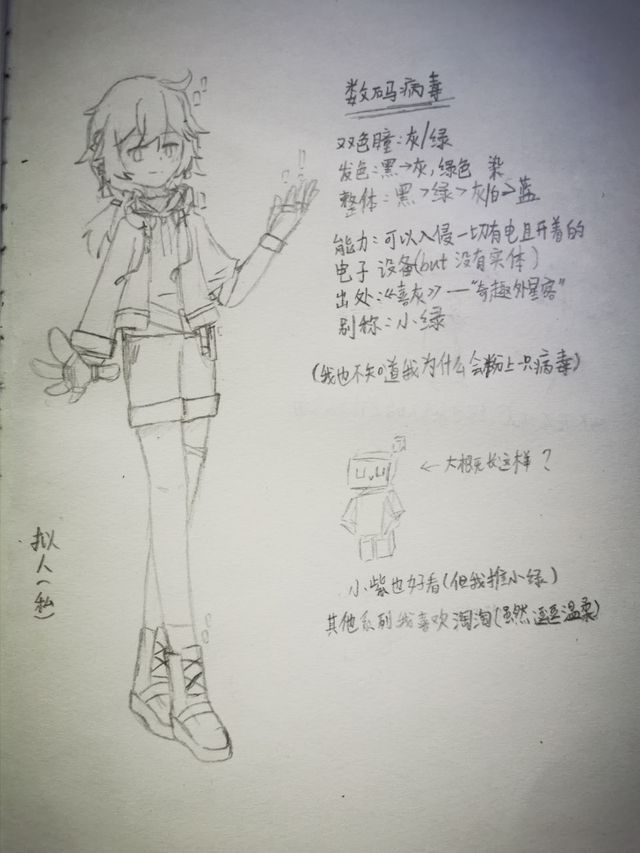 数码病毒
双色瞳:灰/绿
发色:黑→灰,绿色 染
整体:黑>绿>灰/白>蓝
能力:可以入侵一切有电且开着的
电子设备(but 没有实体)
出处:《喜灰》—"奇趣外星客"
别称:小绿
(我也不知道我为什么会粉上只病毒)
←大概死长这样?
小紫也好看(但我推小绿)
其他系列我喜欢淘淘(虽然逐逐温柔)
拟人(私)